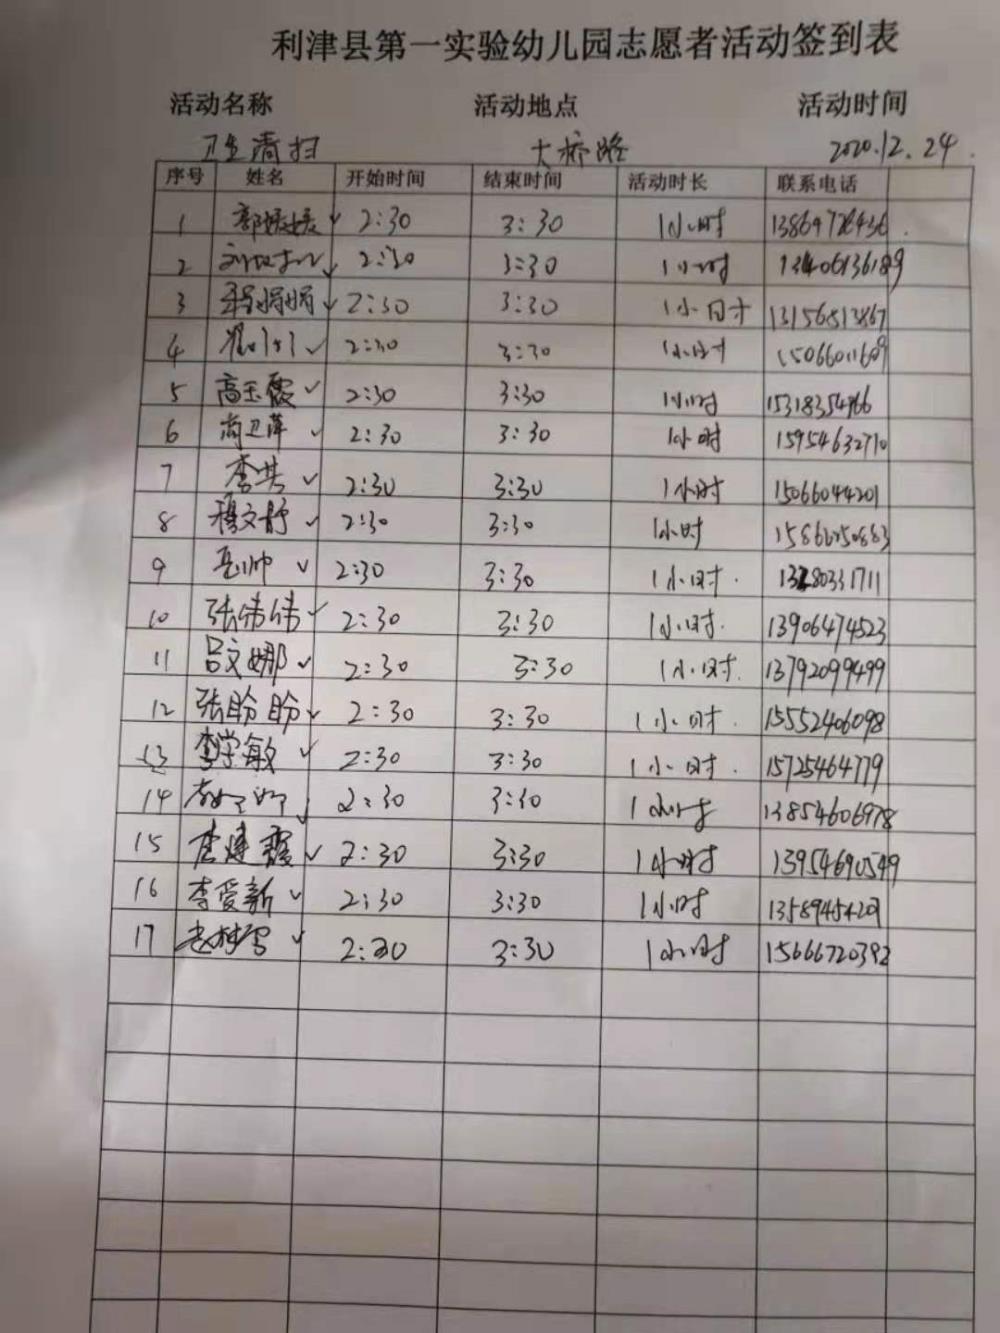 利津县第一实验幼儿园志愿者活动签到表
活动名称 活动地点 活动时间
卫生清扫 大桥路 2020.12.24.
序号 姓名 开始时间 结束时间 活动时长 联系电话
1 郭媛媛 ✓ 2:30 3:30 1小时
2 ✓ 2:30 3:30 1小时 13406136189
3 ✓ 2:30 3:30 1小时 13156813867
4 ✓ 2:30 3:30 1小时 15066011609
5 高玉霞 ✓ 2:30 3:30 1小时 15318354966
6 尚卫萍 ✓ 2:30 3:30 1小时 15954632710
7 李共 ✓ 2:30 3:30 1小时 15066044201
8 穆文静 ✓ 2:30 3:30 1小时
9 ✓ 2:30 3:30 1小时. 13280331711
10 张伟伟 ✓ 2:30 3:30 1小时. 13906474523
11 吕文娜 ✓ 2:30 3:30 1小时. 13792099499
12 张盼盼 ✓ 2:30 3:30 1小时. 15552406098
13 李学敏 ✓ 2:30 3:30 1小时. 15725464779
14 ✓ 2:30 3:30 1小时 13854606978
15 李建霞 ✓ 2:30 3:30 1小时 13954690549
16 李爱新 ✓ 2:30 3:30 1小时
17 ✓ 2:30 3:30 1小时 15666720392